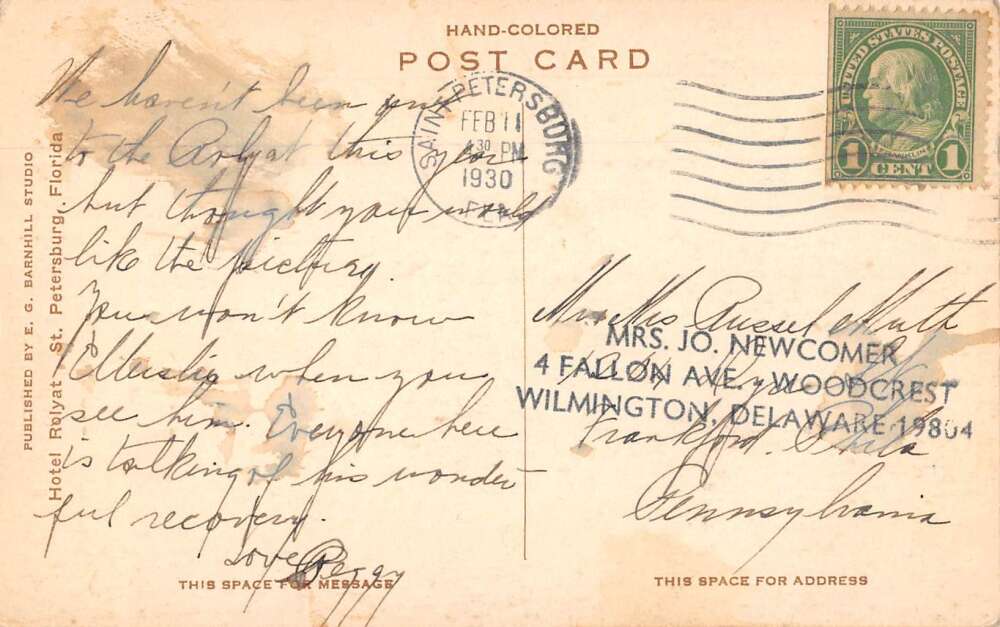 HAND-COLORED
POST CARD
SAINT PETERSBURG
FEB 11
30 PM
1930
UNITED STATES POSTAGE
FRANKLIN
1 CENT 1
PUBLISHED BY E. G. BARNHILL STUDIO
Hotel Rolyat - St. Petersburg, Florida
We haven't been over
to the Rolyat this year
but thought you would
like the picture.
You won't know
when you
see him. Everyone here
is talking of his wonder-
ful recovery.
Love Peggy
Mr Mrs Russel Muth
MRS. JO. NEWCOMER
4 FALLON AVE., WOODCREST
WILMINGTON, DELAWARE 19804
Frankford. Phila
Pennsylvania
THIS SPACE FOR MESSAGE
THIS SPACE FOR ADDRESS